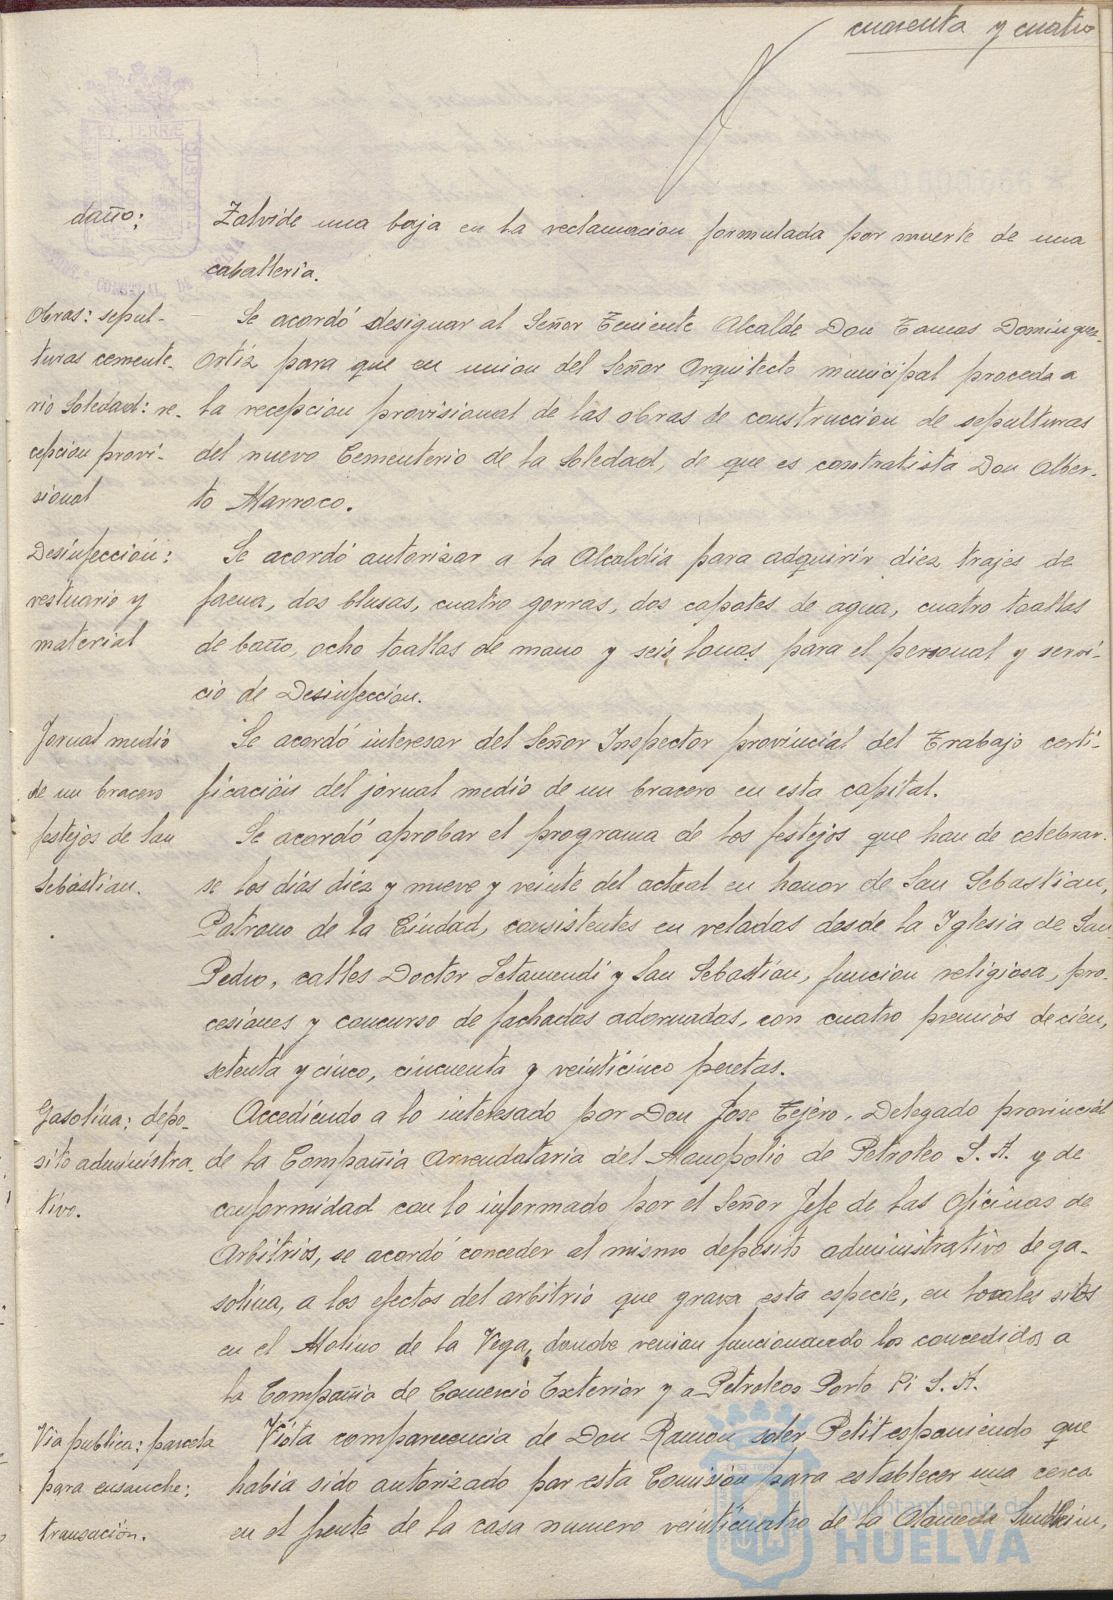 cuarenta y cuatro
daño:
Zalvide una baja en la reclamacion formulada por muerte de una
caballeria.
Obras: sepul-
turas cemente-
rio Soledad: re-
cepcion provi-
sional
Se acordó designar al Señor Teniente Alcalde Don Tomas Dominguez
Ortiz para que en union del Señor Arquitecto municipal proceda a
la recepcion provisional de las obras de construccion de sepulturas
del nuevo Cementerio de la Soledad, de que es contratista Don Alber-
to Marroco.
Desinfección:
vestuario y
material
Se acordó autorizar a la Alcaldía para adquirir diez trajes de
faena, dos blusas, cuatro gorras, dos capotes de agua, cuatro toallas
de baño, ocho toallas de mano y seis lonas para el personal y servi-
cio de Desinfeccion.
Jornal medio
de un bracero
Se acordó interesar del Señor Inspector provincial del Trabajo certi-
ficación del jornal medio de un bracero en esta capital.
festejos de San
Sebastian.
Se acordó aprobar el programa de los festejos que han de celebrar-
se los días diez y nueve y veinte del actual en honor de San Sebastian,
Patrono de la Ciudad, consistentes en veladas desde la Iglesia de San
Pedro, calles Doctor Letamendi y San Sebastian, funcion religiosa, pro-
cesiones y concurso de fachadas adornadas, con cuatro premios de cien,
setenta y cinco, cincuenta y veinticinco pesetas.
Gasolina: depo-
sito administra-
tivo.
Accediendo a lo interesado por Don Jose Tejero, Delegado provincial
de la Compañia Arrendataria del Monopolio de Petroleo S. A. y de
conformidad con lo informado por el Señor Jefe de las Oficinas de
Arbitrios, se acordó conceder al mismo deposito administrativo de ga-
solina, a los efectos del arbitrio que grava esta especie, en locales sitos
en el Molino de la Vega, donde venian funcionando los concedidos a
la Compañia de Comercio Exterior y a Petroleos Porto Pi S. A.
Via publica: parcela
para ensanche:
transacción.
Vista comparecencia de Don Ramon Soler Petit esponiendo que
habia sido autorizado por esta Comision para establecer una cerca
en el frente de la casa numero veinticuatro de la Alameda Sundheim,
Ayuntamiento de
HUELVA